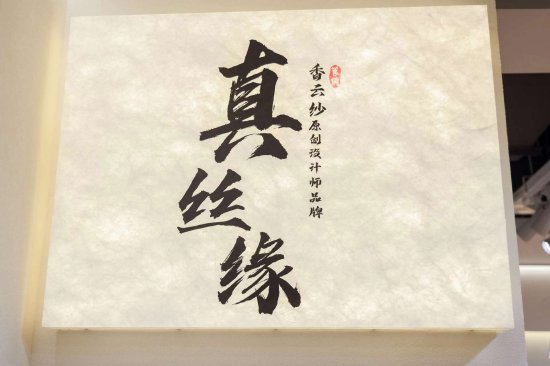 真丝缘
香云纱原创设计师品牌